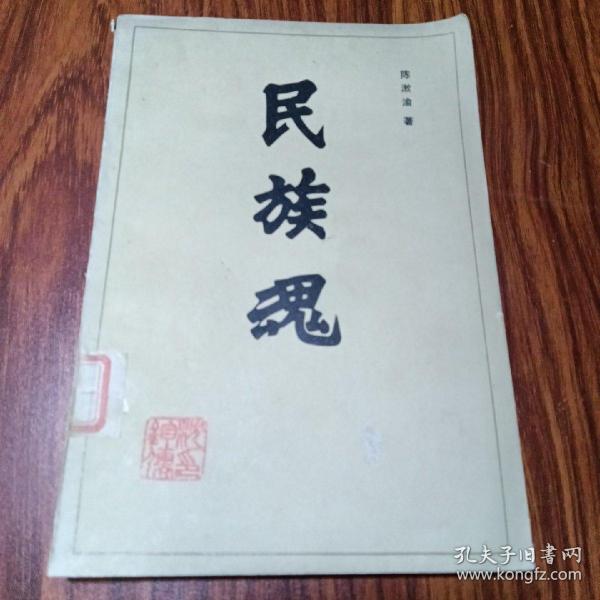 民族魂
陈漱渝 著
孔夫子旧书网
www.kongfz.com